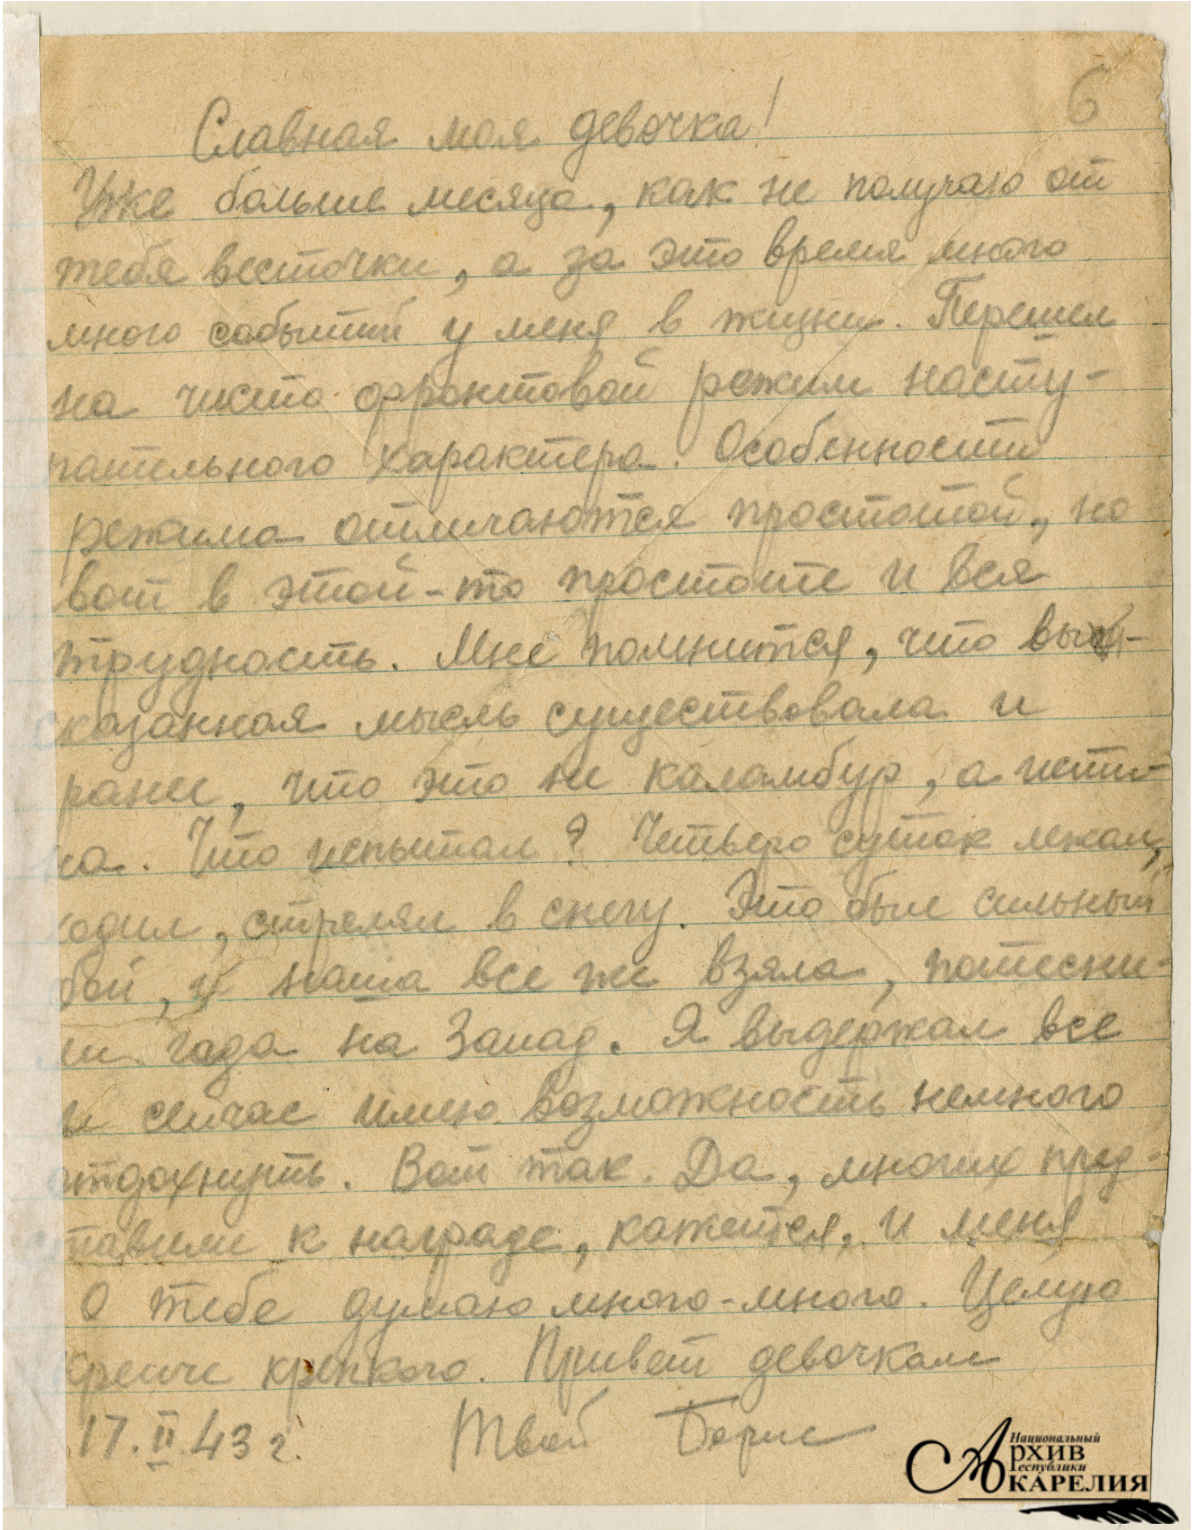 6
Славная моя девочка!
Уже больше месяца, как не получаю от
тебя весточки, а за это время много
много событий у меня в жизни. Перешел
на чисто фронтовой режим насту-
пательного характера. Особенности
режима отличаются простотой, но
вот в этой-то простоте и вся
трудность. Мне помнится, что выс-
казанная мысль существовала и
ранее, что это не каламбур, а исти-
на. Что испытал? Четверо суток лежал,
ходил, стрелял в снегу. Это был сильный
бой, и наша все же взяла, потесни-
ли гада на Запад. Я выдержал все
и сейчас имею возможность немного
отдохнуть. Вот так. Да, многих пред-
ставили к награде, кажется, и меня
О тебе думаю много-много. Целую
крепче крепкого. Привет девочкам
17.II.43 г. Твой Борис
Национальный
АРХИВ
Республики
КАРЕЛИЯ